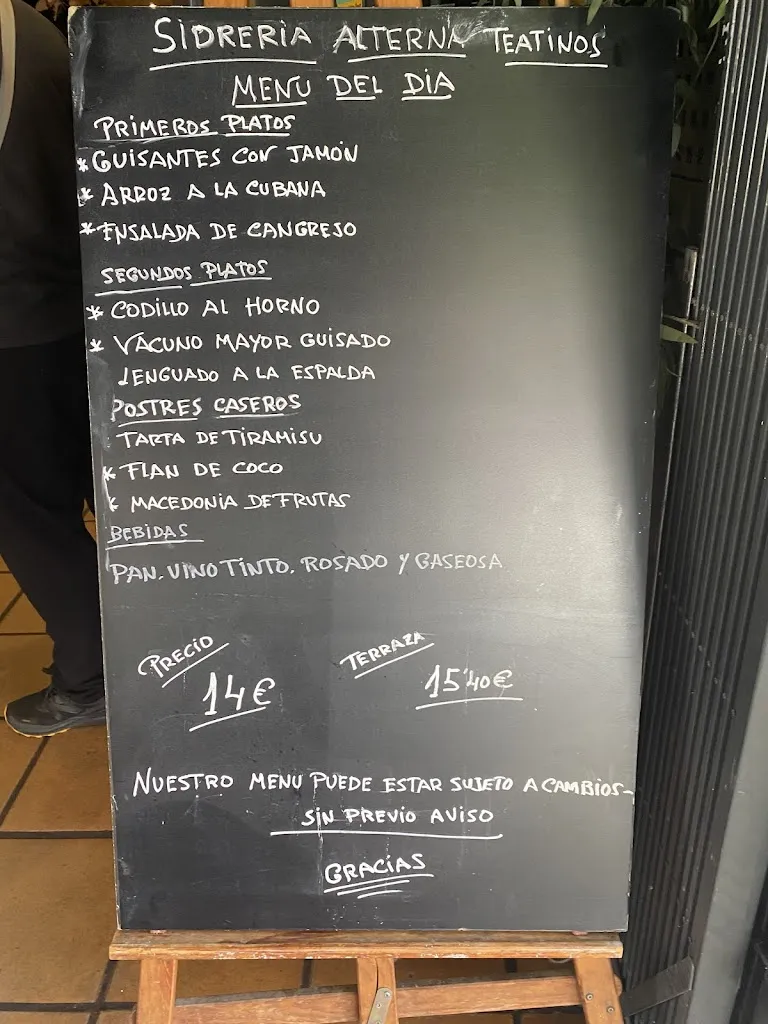 SIDRERIA ALTERNA TEATINOS
MENU DEL DIA
PRIMEROS PLATOS
* GUISANTES CON JAMÓN
* ARROZ A LA CUBANA
* ENSALADA DE CANGREJO
SEGUNDOS PLATOS
* CODILLO AL HORNO
* VACUNO MAYOR GUISADO
LENGUADO A LA ESPALDA
POSTRES CASEROS
TARTA DE TIRAMISU
* FLAN DE COCO
* MACEDONIA DE FRUTAS
BEBIDAS
PAN. VINO TINTO. ROSADO Y GASEOSA
PRECIO
14€
TERRAZA
15'40€
NUESTRO MENU PUEDE ESTAR SUJETO A CAMBIOS-
SIN PREVIO AVISO
GRACIAS